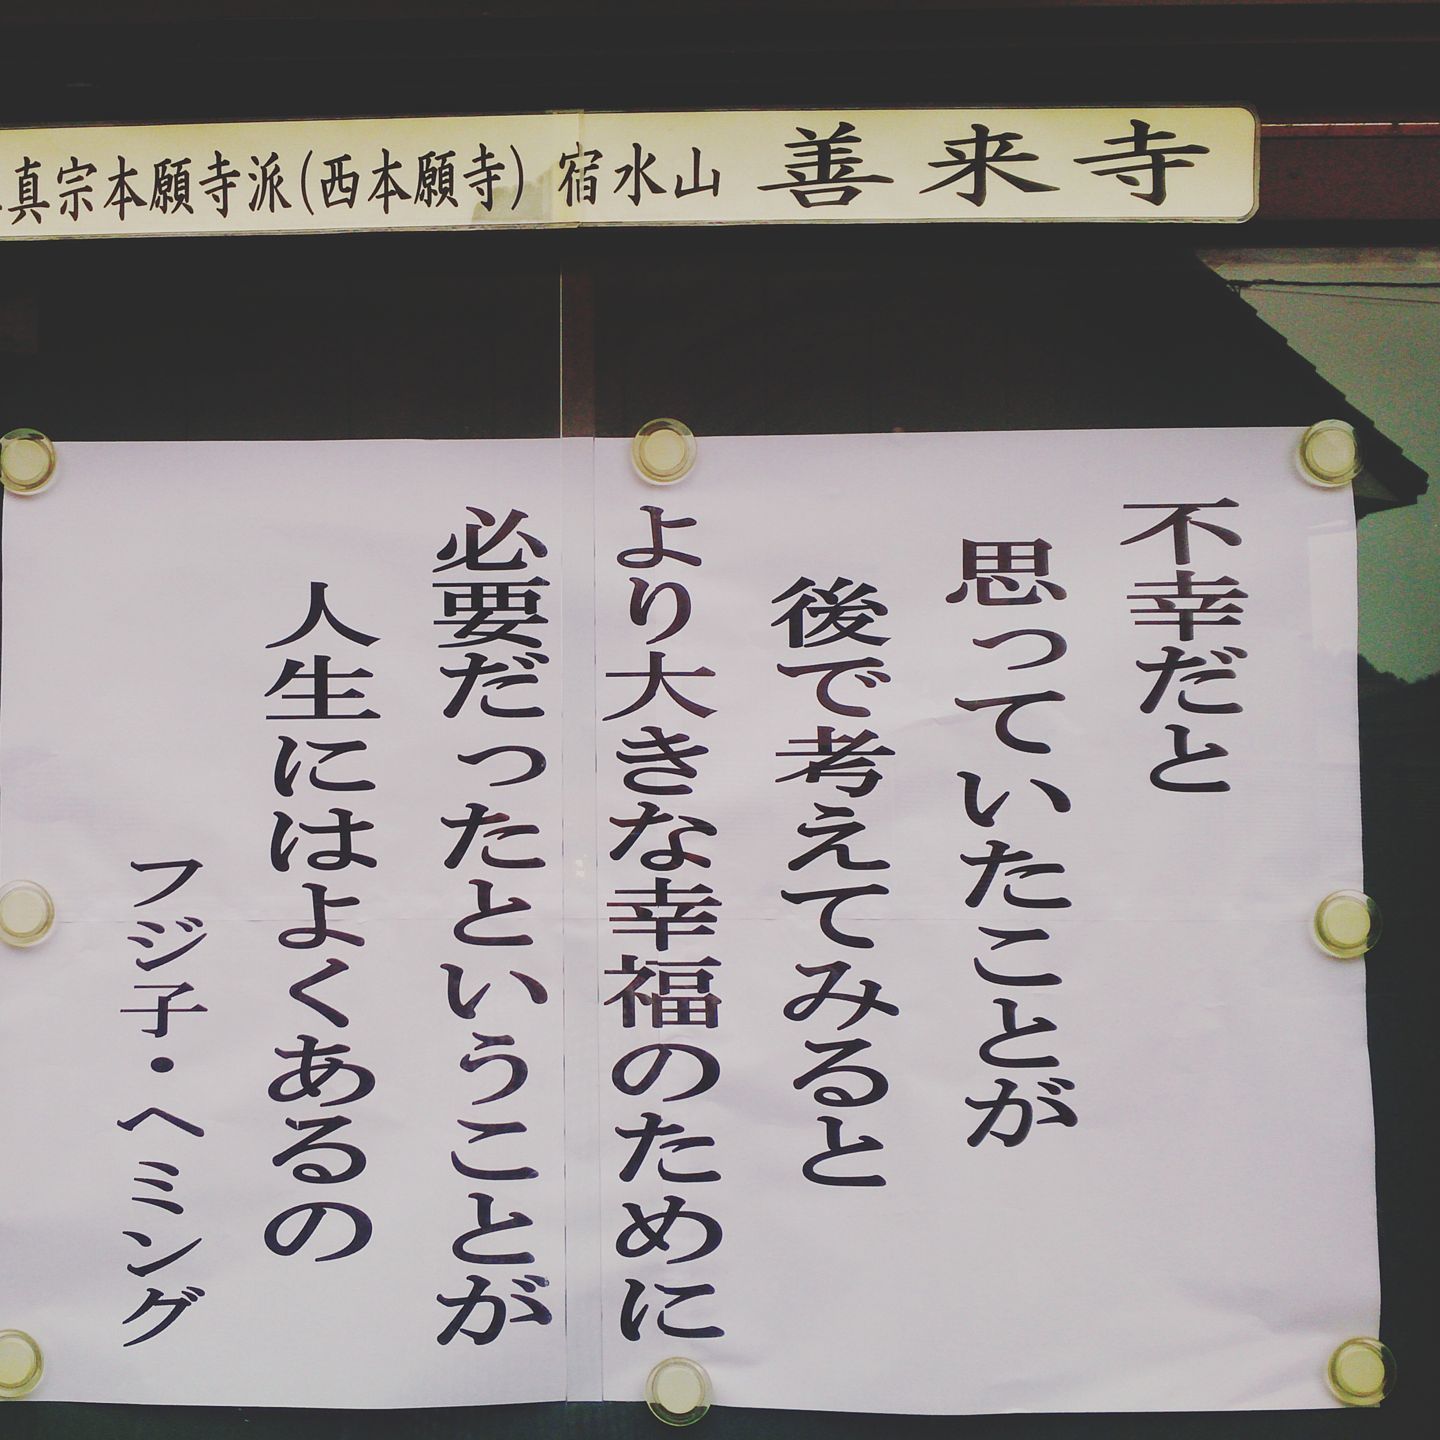 真宗本願寺派(西本願寺) 宿水山 善来寺
不幸だと
思っていたことが
後で考えてみると
より大きな幸福のために
必要だったということが
人生にはよくあるの
フジ子・ヘミング